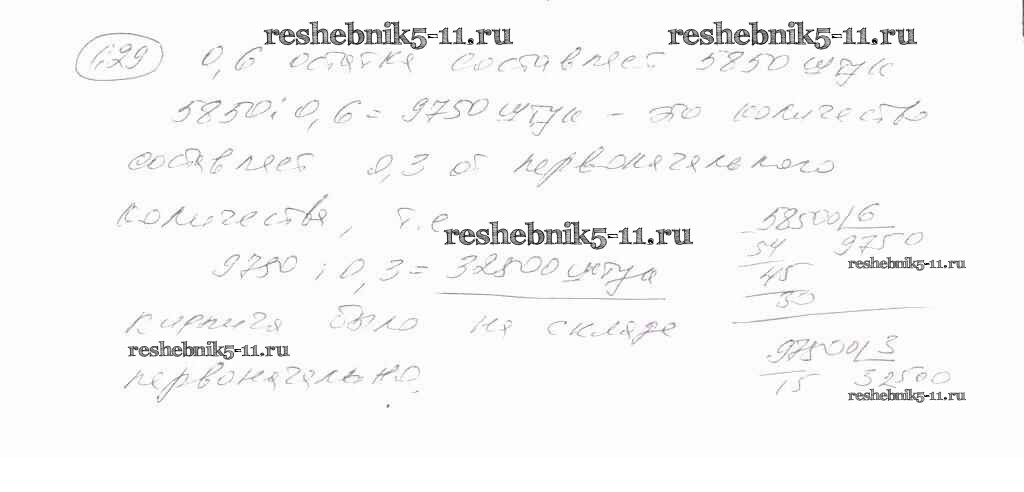 reshebnik5-11.ru reshebnik5-11.ru
1.29 0,6 остатка составляет 5850 штук
5850 : 0,6 = 9750 штук – это количество
составляет 0,3 от первоначального
количества, т.е.
reshebnik5-11.ru
9750 : 0,3 = 32500 штук
кирпича было на складе
reshebnik5-11.ru
первоначально.
58500 6
54 9750
reshebnik5-11.ru
45
30
97500 3
15 32500
reshebnik5-11.ru